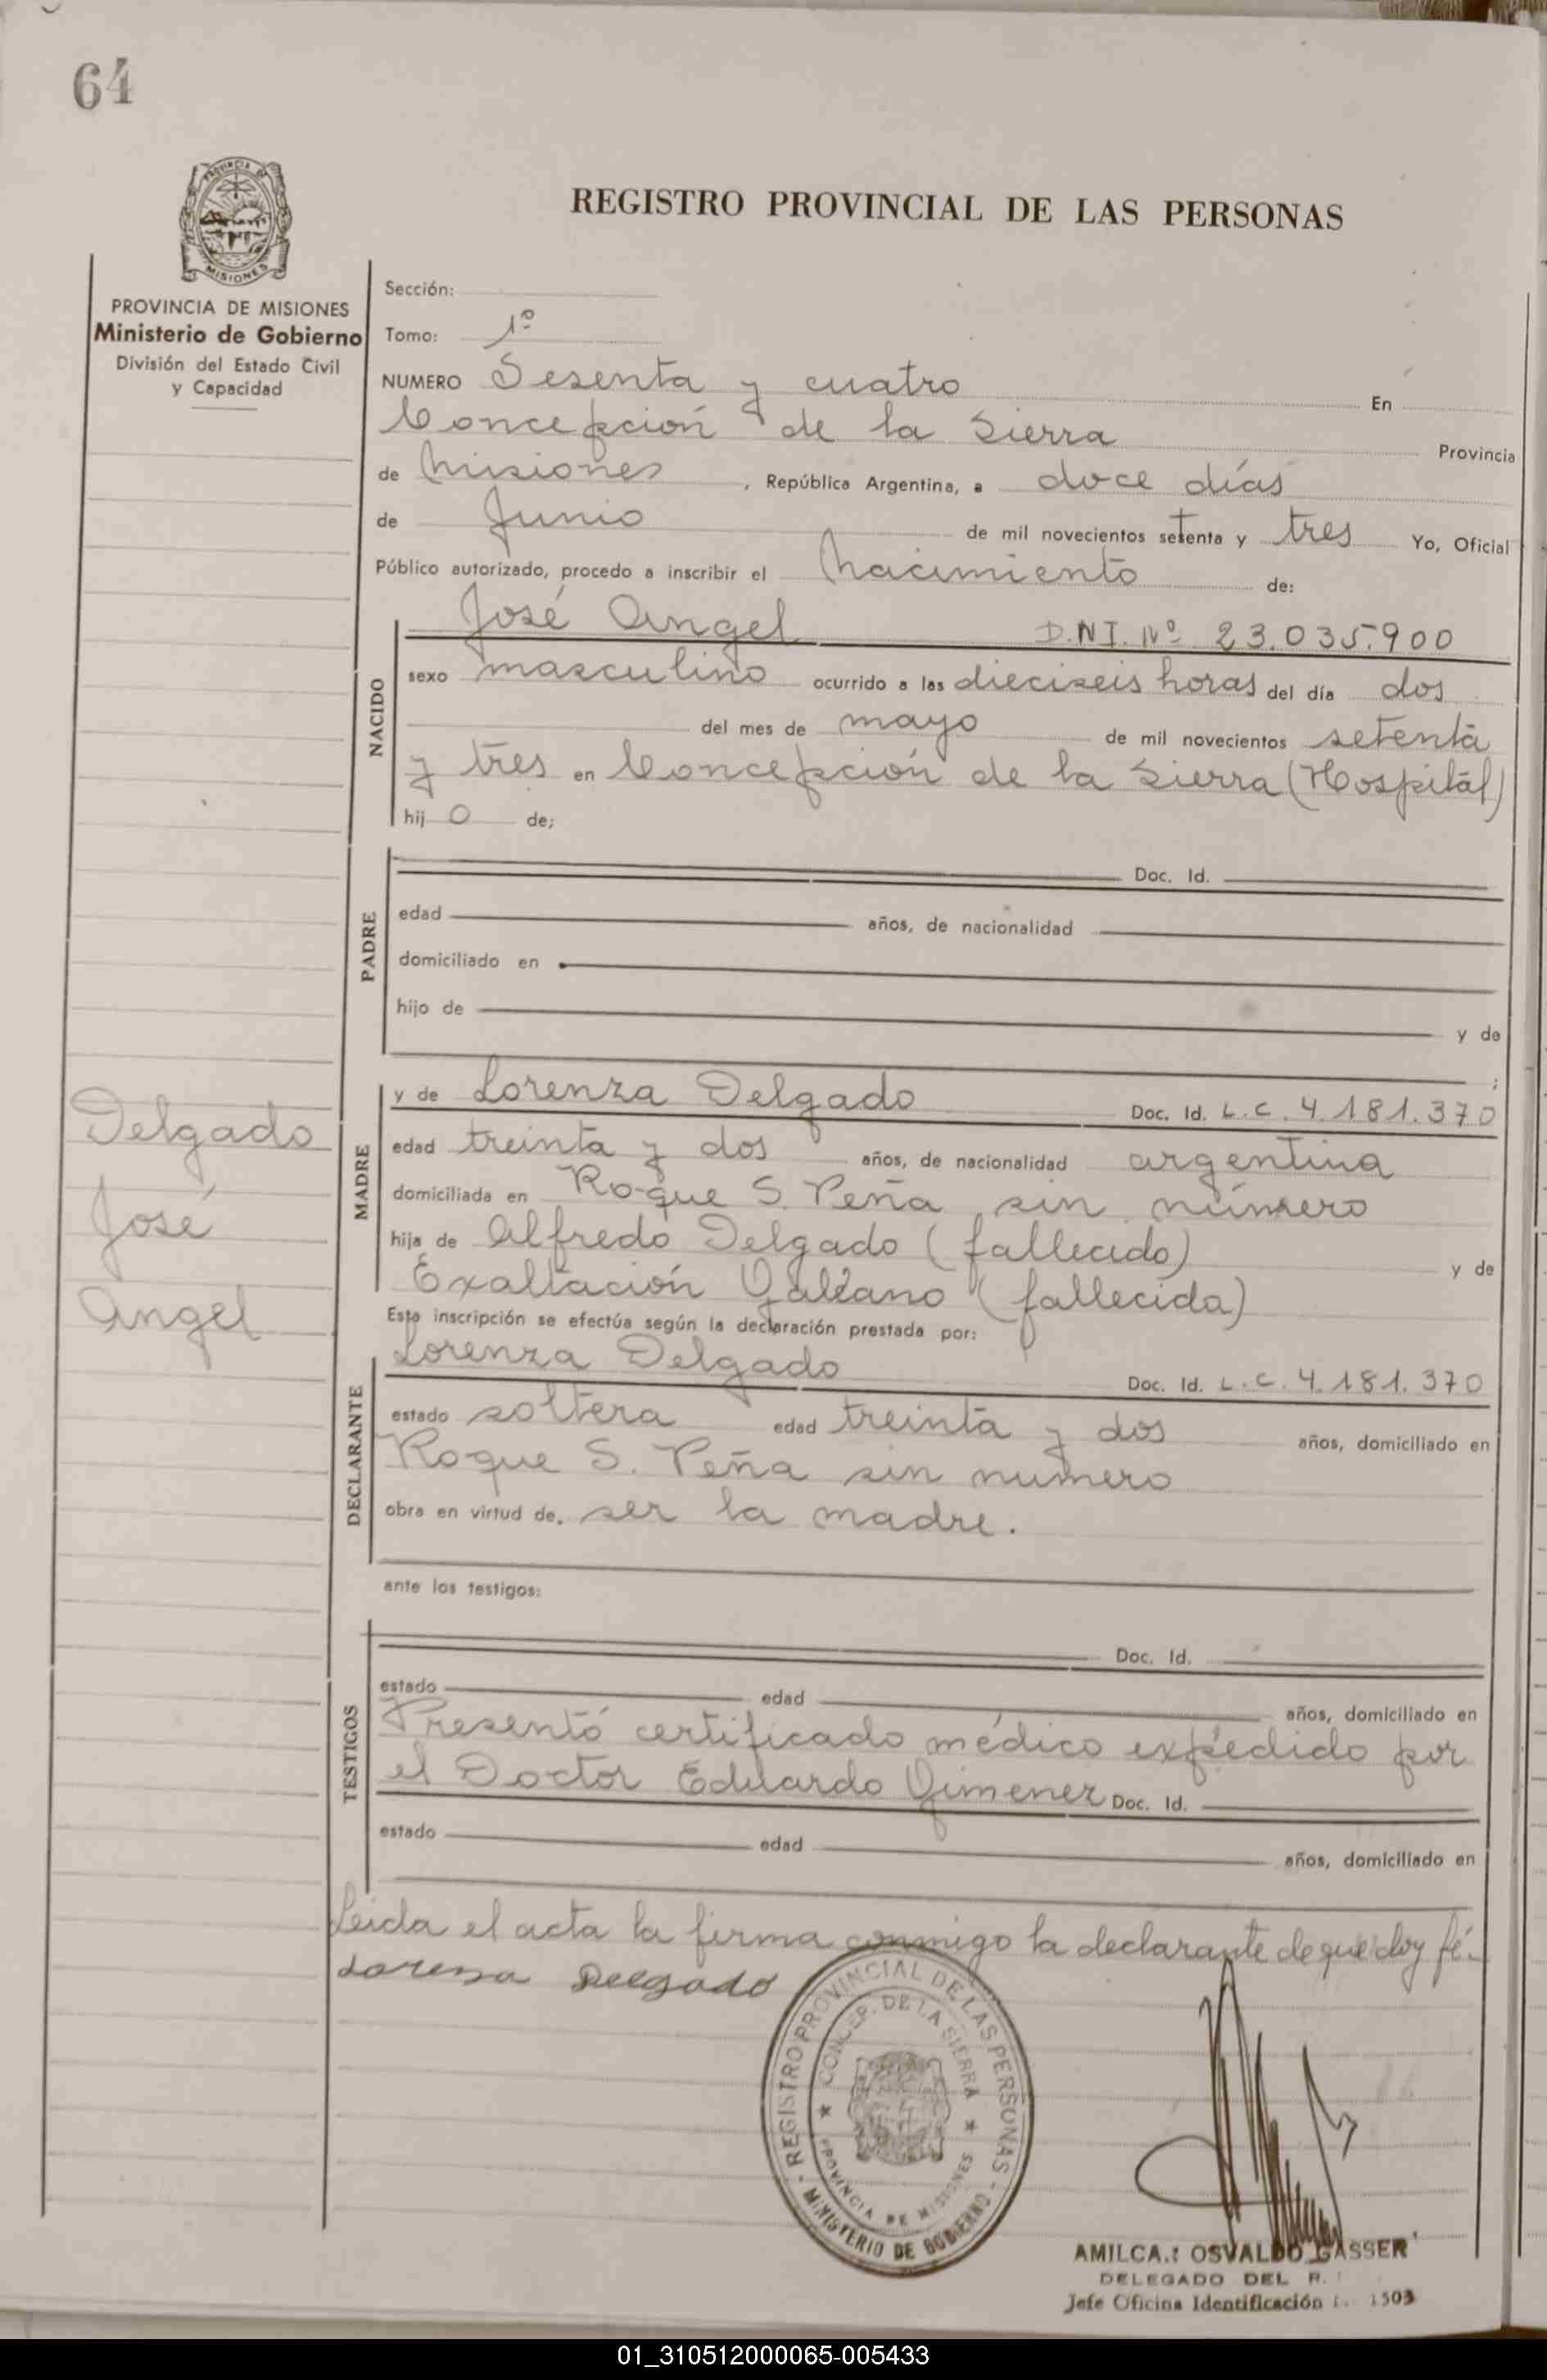 64
PROVINCIA DE
MISIONES
PROVINCIA DE MISIONES
Ministerio de Gobierno
División del Estado Civil
y Capacidad
REGISTRO PROVINCIAL DE LAS PERSONAS
Sección:
Tomo: 1º
NUMERO Sesenta y cuatro En
Concepción de la Sierra Provincia
de Misiones, República Argentina, a doce días
de Junio de mil novecientos setenta y tres Yo, Oficial
Público autorizado, procedo a inscribir el Nacimiento de:
José Angel D.N.I. Nº 23.035.900
NACIDO
sexo masculino ocurrido a las dieciseis horas del día dos
del mes de mayo de mil novecientos setenta
y tres en Concepción de la Sierra (Hospital)
hij o de;
PADRE
Doc. Id.
edad años, de nacionalidad
domiciliado en
hijo de y de
;
MADRE
y de Lorenza Delgado Doc. Id. L.C. 4.181.370
edad treinta y dos años, de nacionalidad argentina
domiciliada en Roque S. Peña sin número
hija de Alfredo Delgado (fallecido) y de
Exaltación Galeano (fallecida)
Delgado
José
Angel
Esta inscripción se efectúa según la declaración prestada por:
DECLARANTE
Lorenza Delgado Doc. Id. L.C. 4.181.370
estado soltera edad treinta y dos años, domiciliado en
Roque S. Peña sin numero
obra en virtud de. ser la madre.
ante los testigos:
TESTIGOS
Doc. Id.
estado edad años, domiciliado en
Presentó certificado médico expedido por
el Doctor Eduardo Gimenez Doc. Id.
estado edad años, domiciliado en
Leida el acta la firma conmigo la declarante de que doy fé.
Lorensa Delgado
REGISTRO PROVINCIAL DE LAS PERSONAS - MINISTERIO DE GOBIERNO -
CONCEP. DE LA SIERRA
PROVINCIA DE MISIONES
AMILCA.: OSVALDO GASSER
DELEGADO DEL R.
Jefe Oficina Identificación 1503
01_310512000065-005433